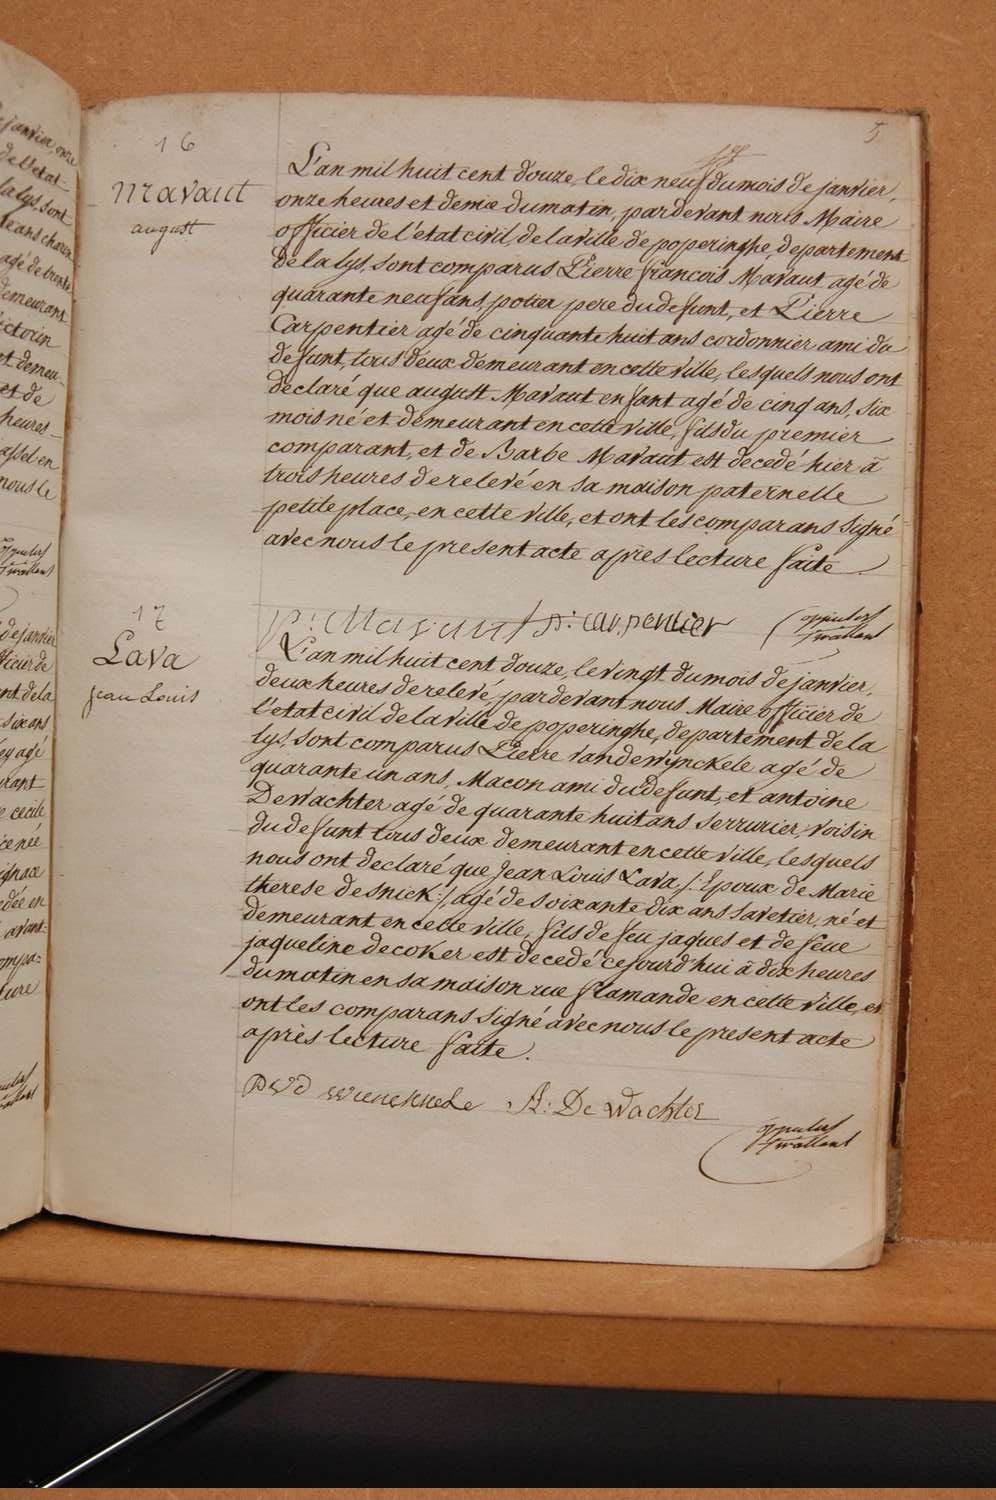 5
16
Mavaut
august
L'an mil huit cent douze, le dix neuf du mois de janvier,
onze heures et demie du matin, pardevant nous Maire
officier de l'etat civil de la ville de poperinghe, departement
de la lys, sont comparus Pierre francois Mavaut agé de
quarante neuf ans, potier pere du defunt, et Pierre
Carpentier agé de cinquante huit ans cordonnier ami du
defunt, tous deux demeurant en cette ville, lesquels nous ont
declaré que august Mavaut enfant agé de cinq ans, six
mois né et demeurant en cette ville, fils du premier
comparant, et de Barbe Mavaut est decedé hier à
trois heures de relevé en sa maison paternelle
petite place, en cette ville, et ont les comparans signé
avec nous le present acte après lecture faite.
P: Mavaut P: carpentier
17
Lava
jean Louis
L'an mil huit cent douze, le vingt du mois de janvier,
deux heures de relevé, pardevant nous Maire officier de
l'etat civil de la ville de poperinghe, departement de la
lys, sont comparus Pierre vandewynckele agé de
quarante un ans, Macon ami du defunt, et antoine
De wachter agé de quarante huit ans serrurier, voisin
du defunt tous deux demeurant en cette ville, lesquels
nous ont declaré que jean Louis Lava /: Epoux de Marie
therese desnick :/ agé de soixante dix ans savetier, né et
demeurant en cette ville, fils de feu jaques et de feue
jaqueline decoker est decedé cejourd'hui à dix heures
du matin en sa maison rue flamande en cette ville, et
ont les comparans signé avec nous le present acte
après lecture faite.
A: De Wachter